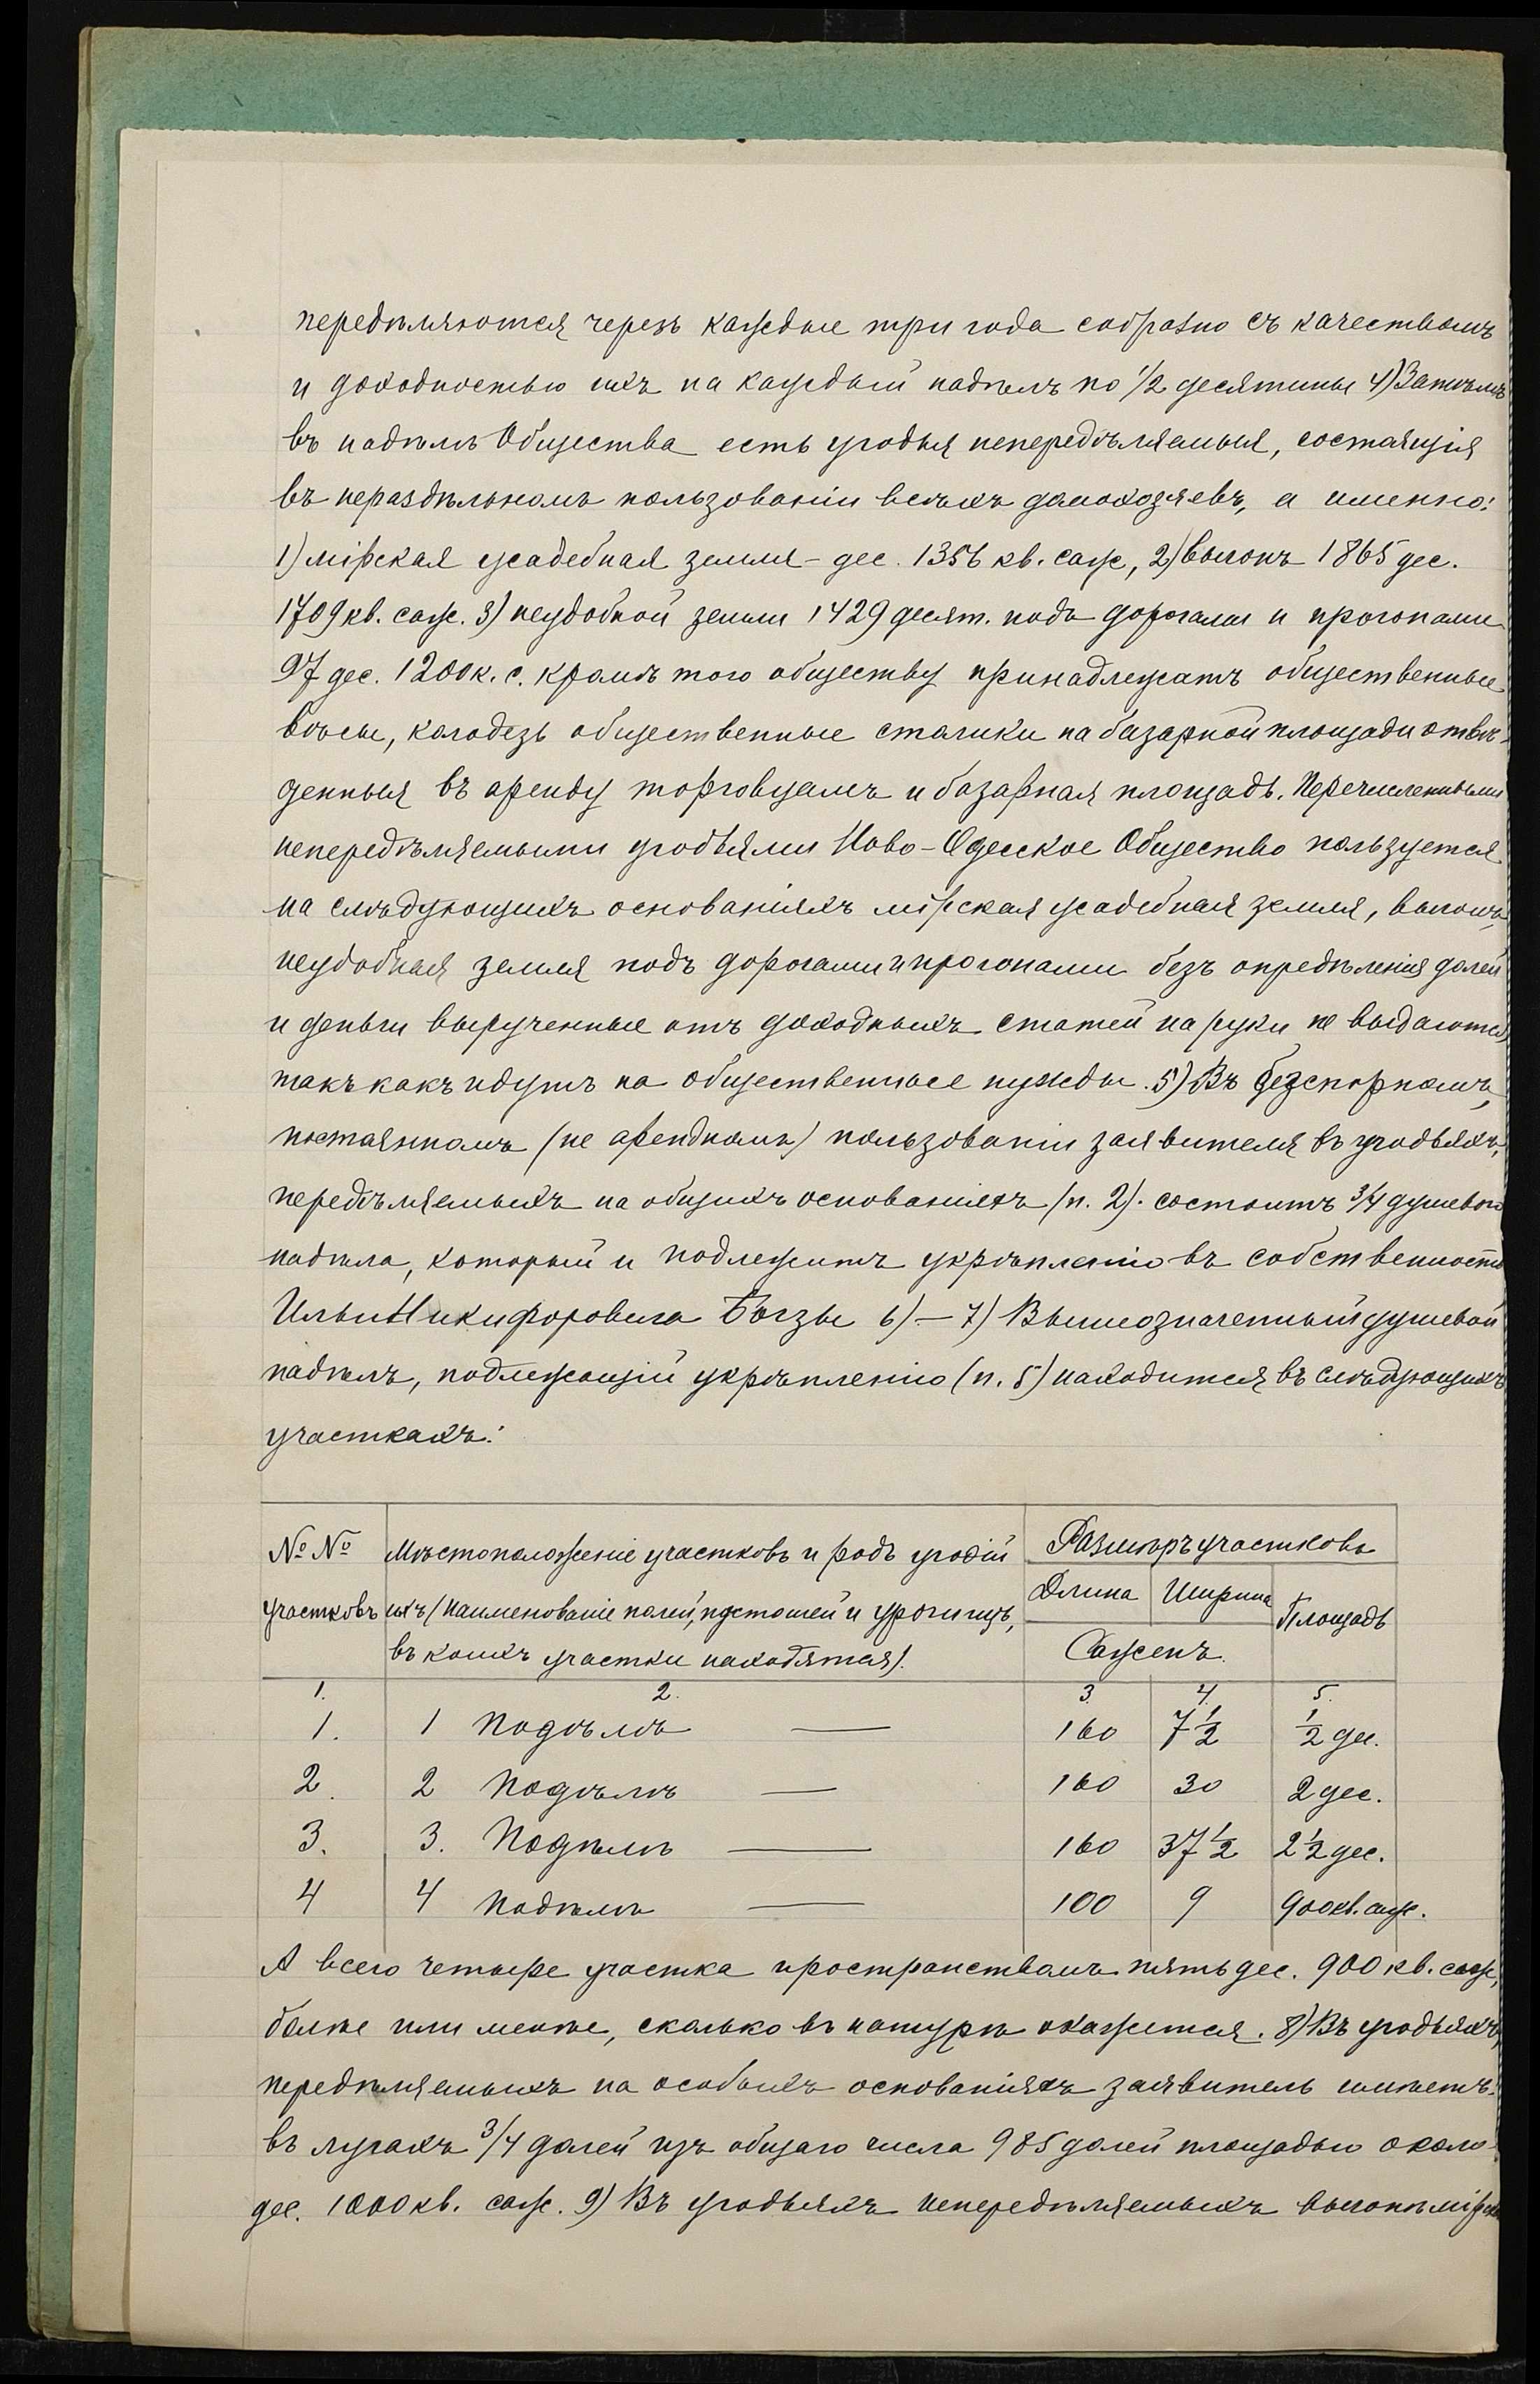 передѣляются черезъ каждые три года сообразно съ качествомъ
и доходностью ихъ на каждый надѣлъ по 1/2 десятины 4) Затѣмъ
въ надѣлѣ Общества есть угодья непередѣляемыя, состоящія
въ нераздѣльномъ пользованіи всѣхъ домохозяевъ, а именно:
1) мірская усадебная земля - дес. 1356 кв. саж, 2) выгонъ 1865 дес.
1709 кв. саж. 3) неудобной земли 1429 десят. подъ дорогами и прогонами
97 дес. 1200 к. с. кромѣ того обществу принадлежатъ общественные
вѣсы, колодезь общественные столики на базарной площади отве-
денныя въ аренду торговцамъ и базарная площадь. Перечисленными
непередѣляемыми угодьями Ново-Одесское Общество пользуется
на слѣдующихъ основаніяхъ мірская усадебная земля, выгонъ,
неудобная земля подъ дорогами и прогонами безъ опредѣленія долей
и деньги вырученные отъ доходныхъ статей на руки не выдаются
такъ какъ идутъ на общественные нужды. 5) Въ безспорномъ,
постоянномъ (не арендномъ) пользованіи заявителя въ угодьяхъ,
передѣляемыхъ на общихъ основаніяхъ (п. 2). состоитъ 3/4 душевого
надѣла, который и подлежитъ укрѣпленію въ собственность
Ильи Никифоровича Богзы 6) — 7) Вышеозначенный душевой
надѣлъ, подлежащій укрѣпленію (п. 5) находится въ слѣдующихъ
участкахъ:
№ № участковъ
Мѣстоположеніе участковъ и родъ угодій
ихъ (Наименованіе полей, пустошей и урочищъ,
въ коихъ участки находятся).
Размѣръ участковъ
Длина Ширина Площадь
Сажень.
1. 2. 3. 4. 5.
1. 1 Подѣлъ — 160 7 1/2 1/2 дес.
2. 2 Подѣлъ — 160 30 2 дес.
3. 3. Подѣлъ — 160 37 1/2 2 1/2 дес.
4 4 Подѣлъ — 100 9 900 кв. саж.
А всего четыре участка пространствомъ пять дес. 900 кв. саж,
болѣе или менѣе, сколько въ натурѣ окажется. 8) Въ угодьяхъ,
передѣляемыхъ на особыхъ основаніяхъ заявитель имѣетъ:
въ лугахъ 3/4 долей изъ общаго числа 985 долей площадью около-
дес. 1000 кв. саж. 9) Въ угодьяхъ непередѣляемыхъ выгонѣ